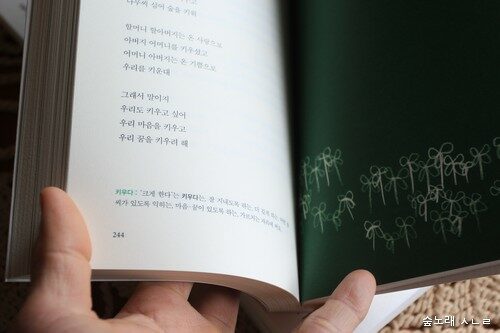 나무씩 심어 숲을 키워
할머니 할아버지는 온 사랑으로
아버지 어머니를 키우셨고
어머니 아버지는 온 기쁨으로
우리를 키운대
그래서 말이지
우리도 키우고 싶어
우리 마음을 키우고
우리 꿈을 키우려 해
키우다 : ‘크게 한다’는 키우다는, 잘 지내도록 하는,
씨가 있도록 익히는, 마음·꿈이 있도록 하는, 가르치는
244
숲노래 ㅅㄴㄹ